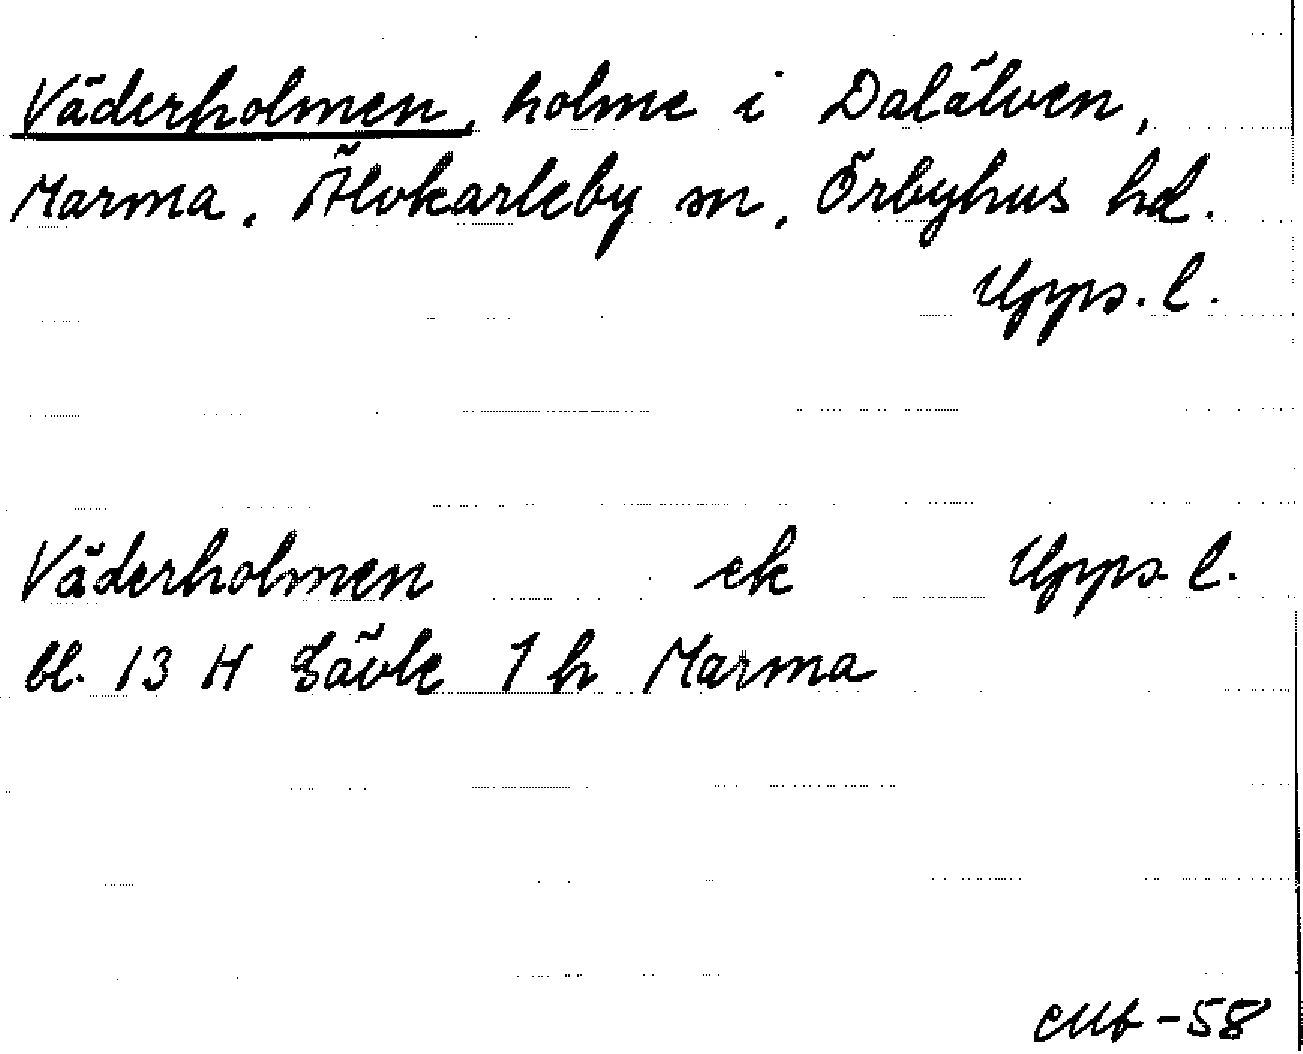 Väderholmen, holme i Dalälven,
Marma, Älvkarleby sn, Örbyhus hd.
Upps. l.
Väderholmen ek Upps l.
bl. 13 H Gävle 1 h Marma
CMb-58